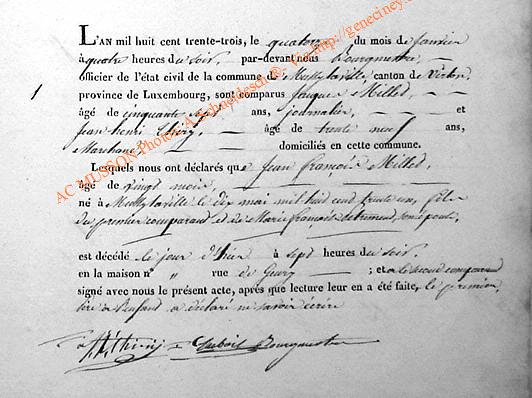 L'AN mil huit cent trente-trois, le quatorze du mois de janvier
à quatre heures du soir, par-devant nous Bourgmestre,
officier de l'état civil de la commune de canton de Virton,
province de Luxembourg, sont comparus Jacques Millet,
1
âgé de cinquante sept ans, journalier, et
jean-henri Thiry âgé de trente neuf ans,
Marchand domiciliés en cette commune.
Lesquels nous ont déclarés que Jean françois Millet,
âgé de vingt mois,
né à le dix mai mil huit cent trente un, fils
du premier comparant et de Marie françoise son épouse,
est décédé le jour d'hier à sept heures du soir,
en la maison n° „ rue de ; et a le second comparant
signé avec nous le présent acte, après que lecture leur en a été faite, le premier,
père de l'enfant a déclaré ne savoir écrire
Thiry Dubois Bourgmestre
AC MUSSON Photo A Schaedgen ®- Via http://geneciney.org